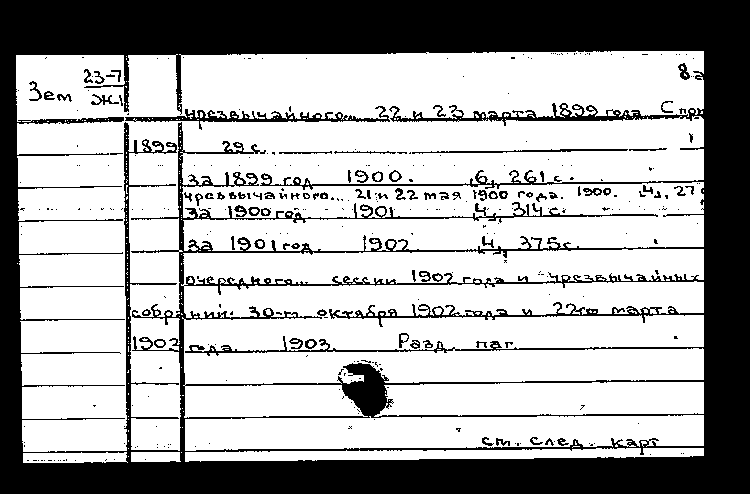 8а
Зем 23-7
Ж1
чрезвычайного... 22 и 23 марта 1899 года С при
1899 29 с.
за 1899 год 1900. 6, 261 с.
чрезвычайного... 21 и 22 мая 1900 года. 1900. 4, 27 с
за 1900 год 1901 4, 314 с.
за 1901 год. 1902 4, 375 с.
очередного... сессии 1902 года и чрезвычайных
собраний: 30-го октября 1902 года и 22-го марта
1902 года. 1903. Разд. паг.
см. след. карт